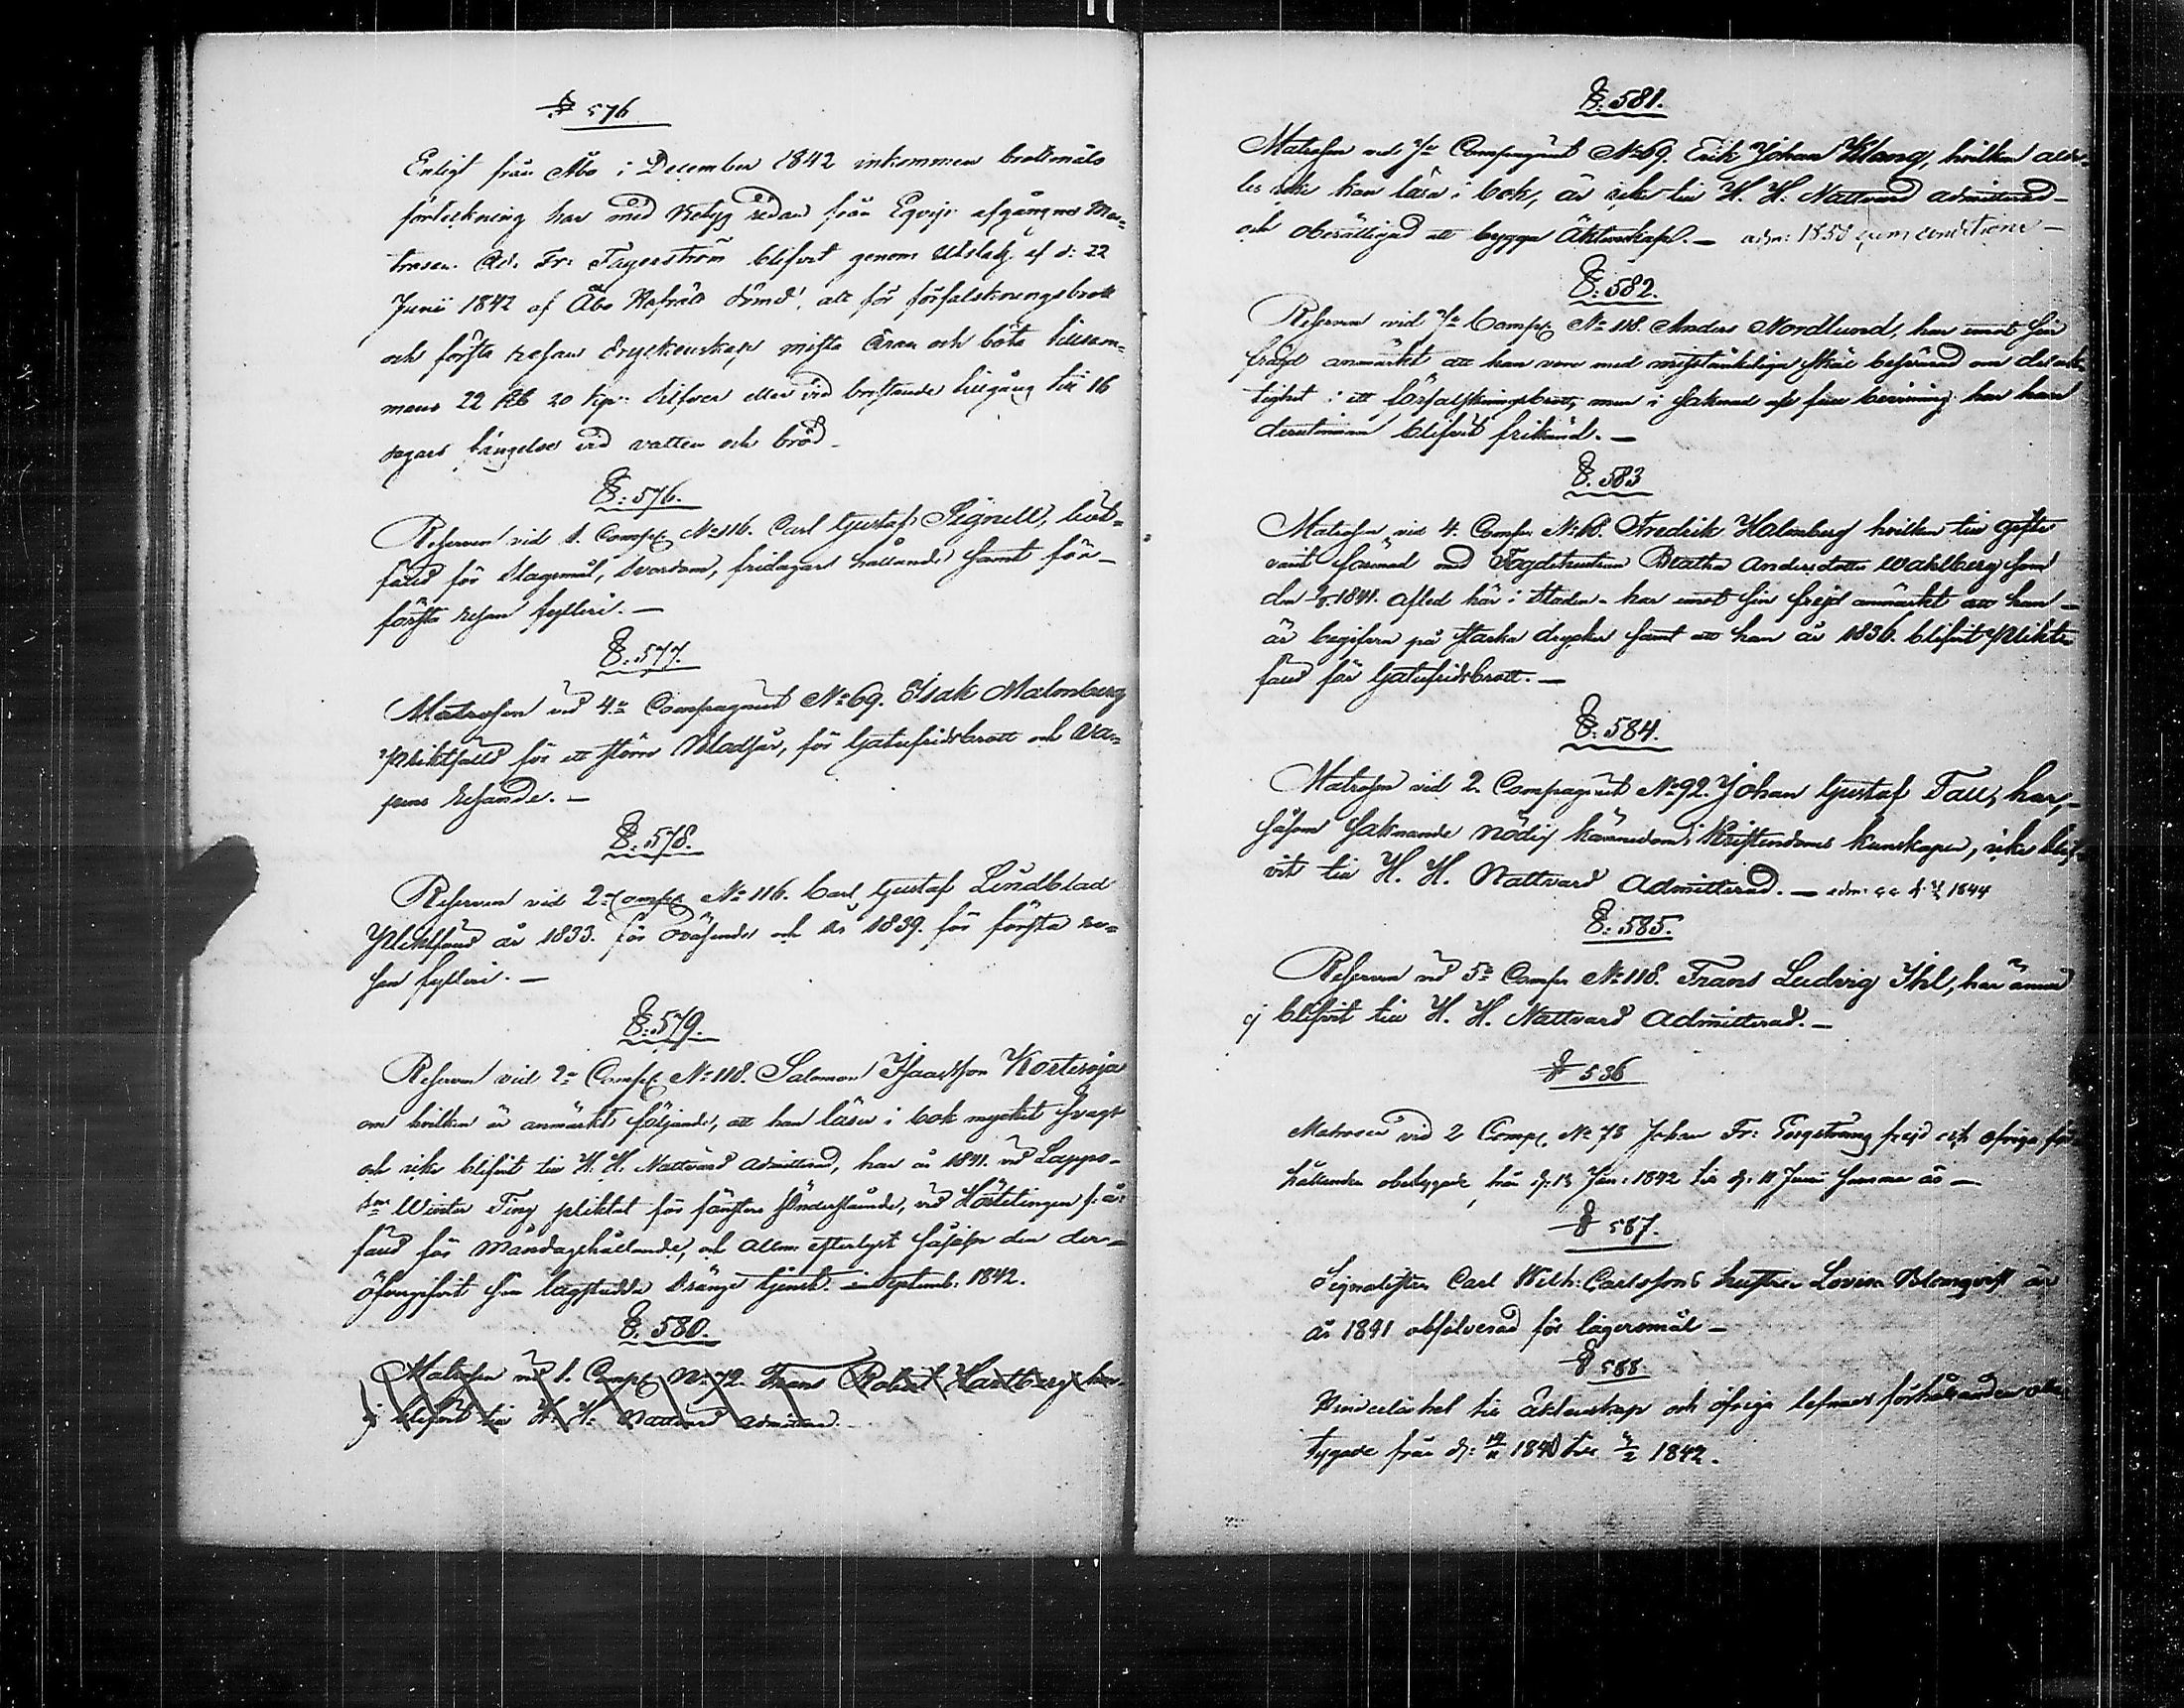 § 576
Enligt från Åbo i December 1842 inkommen brottmåls
förteckning har med betyg redan från Eqvip: afgångne Ma-
trosen Ad. Fr: Fagerström blifvit genom Utslag af d: 22
Junii 1842 af Åbo Hofrätt dömd, att för förfalskningsbrott
och första resans dryckenskap mista äran och böta tillsam-
mans 22 Rb 20 kop: Silfver eller vid bristande tillgång till 16
dagars fängelse vid vatten och bröd.
§: 576.
Reserven vid 1. Comp: No 116. Carl Gustaf Signell, bot-
fäld för Slagsmål, Svordom, fridagars hållande samt för
första resan fylleri. —
§: 577.
Matrosen vid 4:e Compagniet No 69. Isak Malmberg
Pliktfälld för ett större Blodsår, för Gatufridsbrott och
§: 578.
Reserven vid 2 Comp: No 116. Carl Gustaf Lindblad
Pliktfäld år 1833. för Oväsende och år 1839. för första re-
san fylleri. —
§: 579.
Reserven vid 2:a Comp: No 118. Salomon Isaacsson Kortesoja
om hvilken är anmärkt följande, att han läser i bok mycket svagt
och icke blifvit till H. H. Nattvard admitterad, har år 1841. vid Lappo-
Winter Ting pliktat för fönsters sönderslående, vid Höstetingen s: år
fäld för Måndagshållande, och allm: efterlyst såsom den der
öfvergifvit sin lagstadda Drängs tjenst. i Septemb: 1842.
§. 580.
Matrosen vid 1. Comp: No 72. Frans Robert Hartberg har
ej blifvit till H. H. Nattvard admitterad.
§: 581.
Matrosen vid Compagniet No 69. Erik Johan Klang, hvilken alde-
les icke kan läsa i bok, är icke till H. H. Nattvard admitterad
och oberättigad att bygga Äktenskap. — adm: 1850 cum conditione —
§: 582.
Reserven vid Comp: No 118. Anders Nordlund, har emot sin
frejd anmärkt att han vore med misstänkeliga skäl besvärad om delak-
tighet i ett förfalskningsbrott, men i saknad af full bevisning har han
derutinnan blifvit frikänd. —
§. 583
Matrosen vid 4. Comp: No 68. Fredrik Holmberg hvilken till gifte
varit förenad med Fogdehustrun Beatha Andersdotter Wahlberg som
den 1841. afled här i Staden - har emot sin frejd anmärkt att han
är begifven på starka drycker samt att han år 1836. blifvit plikt-
fäld för Gatufridsbrott. —
§. 584.
Matrosen vid 2. Compagniet No 92. Johan Gustaf Tall, har,
såsom saknande nödig kännedom i Kristendoms kunskapen, icke blif-
vit till H. H. Nattvard admitterad. — adm: 1844
§: 585.
Reserven vid 5:e Comp No 118. Frans Ludvig Ihl, har ännu
ej blifvit till H. H. Nattvard admitterad. —
§ 536
Matrosen vid 2 Comp, No 78 Johan Fr: frejd och öfriga för-
hållanden obetygade från d: 13 Jan: 1842 till d: 11 Junii samma år —
§ 587.
Signalisten Carl Wilh: Carlssons hustru Lovisa Blomqvist är
år 1841 absolverad för lägersmål —
§ 588.
hel till äktenskap och öfriga lefnads förhållanden obe-
tygade från d: 1840 till 1842.